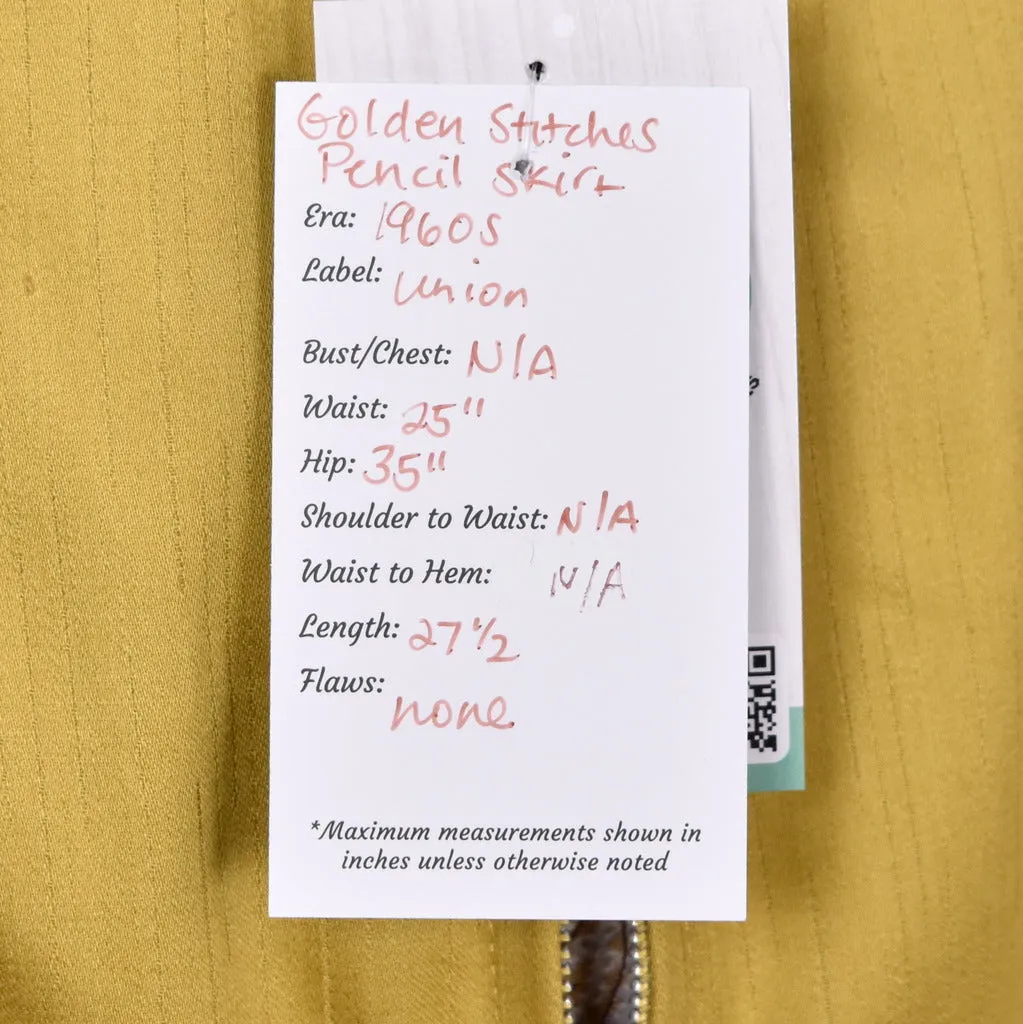 Golden Stitches
Pencil Skirt
Era: 1960s
Label: Union
Bust/Chest: N/A
Waist: 25"
Hip: 35"
Shoulder to Waist: N/A
Waist to Hem: N/A
Length: 27 1/2
Flaws: none
*Maximum measurements shown in
inches unless otherwise noted